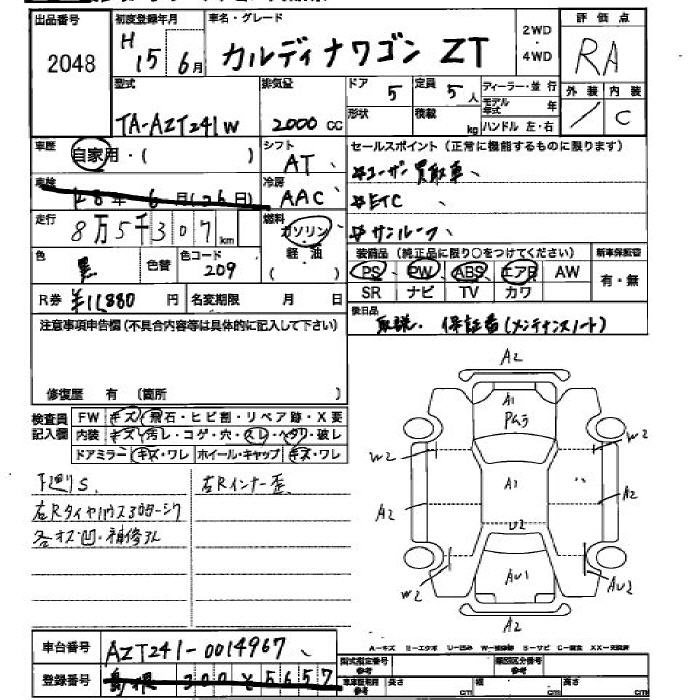 出品番号 初度登録年月 車名・グレード 2WD 評価点
2048 H 15 6月 カルディナワゴン ZT ・4WD RA
型式 排気量 ドア 5 定員 5人 ディーラー・並行 外装 内装
形状 積載 kg モデル年式 年 / C
TA-AZT241W 2000 CC ハンドル 左・右
車歴 自家用・( ) シフト AT、 セールスポイント(正常に機能するものに限ります)
車検 年 6月(26日) 冷房 AAC、 #ユーザー買取車、
#ETC
走行 8万5千307km 燃料 ガソリン、 #サンルーフ、
軽油 装備品(純正品に限り○をつけてください) 新車保証書
色 黒 色替 色コード 209 PS PW ABS エアB AW 有・無
R券 ¥11,880円 名変期限 月 日 SR ナビ TV カワ
注意事項申告欄(不具合内容等は具体的に記入して下さい) 後日品
取説・保証書(メンテナンスノート)
修復歴 有 (箇所 )
検査員 FW キズ・飛石・ヒビ割・リペア跡・X変
記入欄 内装 キズ・汚レ・コゲ・穴・スレ・ヘタリ・破レ
ドアミラー キズ・ワレ ホイール・キャップ キズ・ワレ
下廻りS、 右Rインナー歪
右Rタイヤハウス
各キズ凹・補修
A2
A1
W2 W2
A2 A1 A2
U2
W2 AU1 AU2
A2
A-キズ
車台番号 AZT241-0014967、
登録番号 島根 300 そ 5657
型式指定番号 参考 類別区分番号 参考
長さ cm 幅 cm 高さ cm